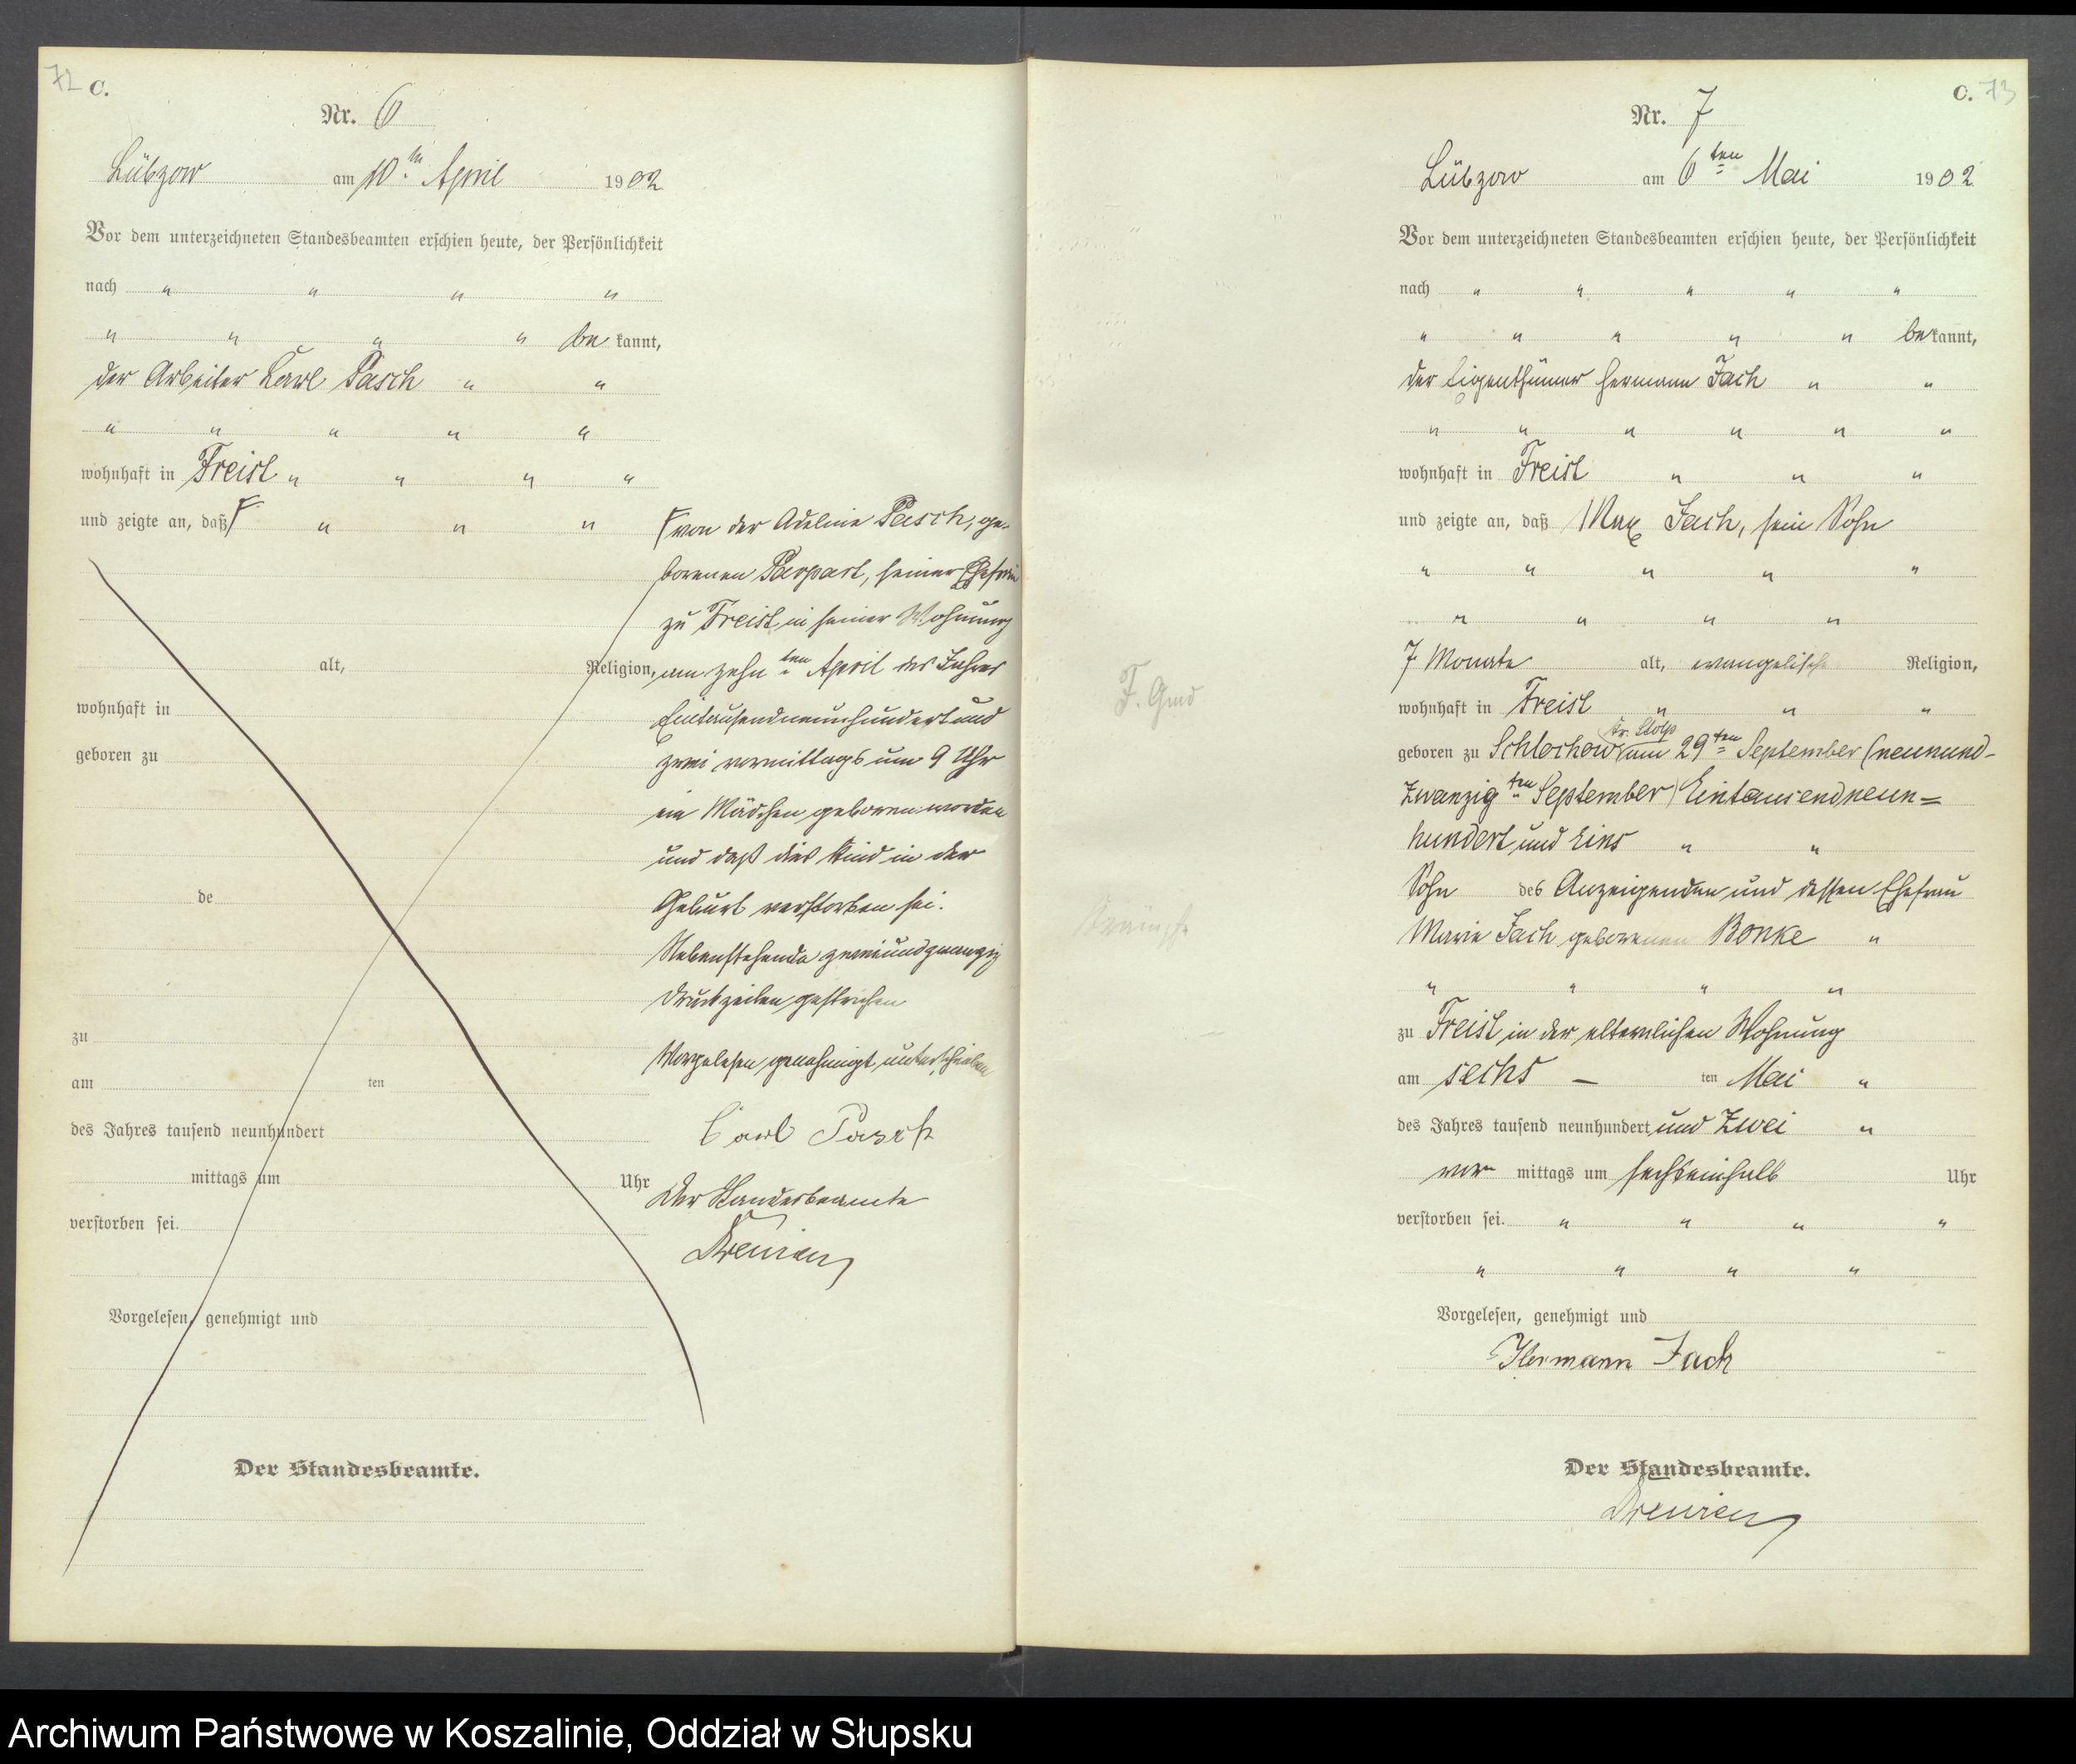 72 C.
Nr. 6
Lübzow am 10ten April 1902
Vor dem unterzeichneten Standesbeamten erschien heute, der Persönlichkeit
nach " " " "
" " " " be kannt,
der Arbeiter Karl Pasch " "
" " " " "
wohnhaft in Freist " " " "
und zeigte an, daß " " "
alt, Religion,
wohnhaft in
geboren zu
de
zu
am ten
des Jahres tausend neunhundert
mittags um Uhr
verstorben sei.
Vorgelesen, genehmigt und
Der Standesbeamte.
von der Adeline Pasch, ge-
borenen Parpart, seiner Ehefrau
zu Freist in seiner Wohnung
am zehn ten April des Jahres
Eintausendneunhundert und
zwei vormittags um 9 Uhr
ein Mädchen geboren worden
und daß dies Kind in der
Geburt verstorben sei.
Nebenstehende zweiundzwanzig
Druckzeilen gestrichen
Vorgelesen genehmigt unterschrieben
Carl Pasch
Der Standesbeamte
Drewien
C. 73
Nr. 7
Lübzow am 6ten Mai 1902
Vor dem unterzeichneten Standesbeamten erschien heute, der Persönlichkeit
nach " " " " "
" " " " " bekannt,
der Eigenthümer Hermann Jach " "
" " " " " "
wohnhaft in Freist " " "
und zeigte an, daß Max Jach, sein Sohn
" " " " "
" " " "
7 Monate alt, evangelische Religion,
wohnhaft in Freist " " "
Kr. Stolp
geboren zu Schlochow am 29ten September (neunund-
Zwanzigten September) Eintausendneun=
hundert und Eins " "
Sohn des Anzeigenden und dessen Ehefrau
Marie Jach geborenen Bonke "
" " " "
zu Freist in der elternlichen Wohnung
am sechs – ten Mai "
des Jahres tausend neunhundert und Zwei "
vor mittags um sechseinhalb Uhr
verstorben sei. " " " "
" " " "
Vorgelesen, genehmigt und
Hermann Jach
Der Standesbeamte.
Drewien
Archiwum Państwowe w Koszalinie, Oddział w Słupsku